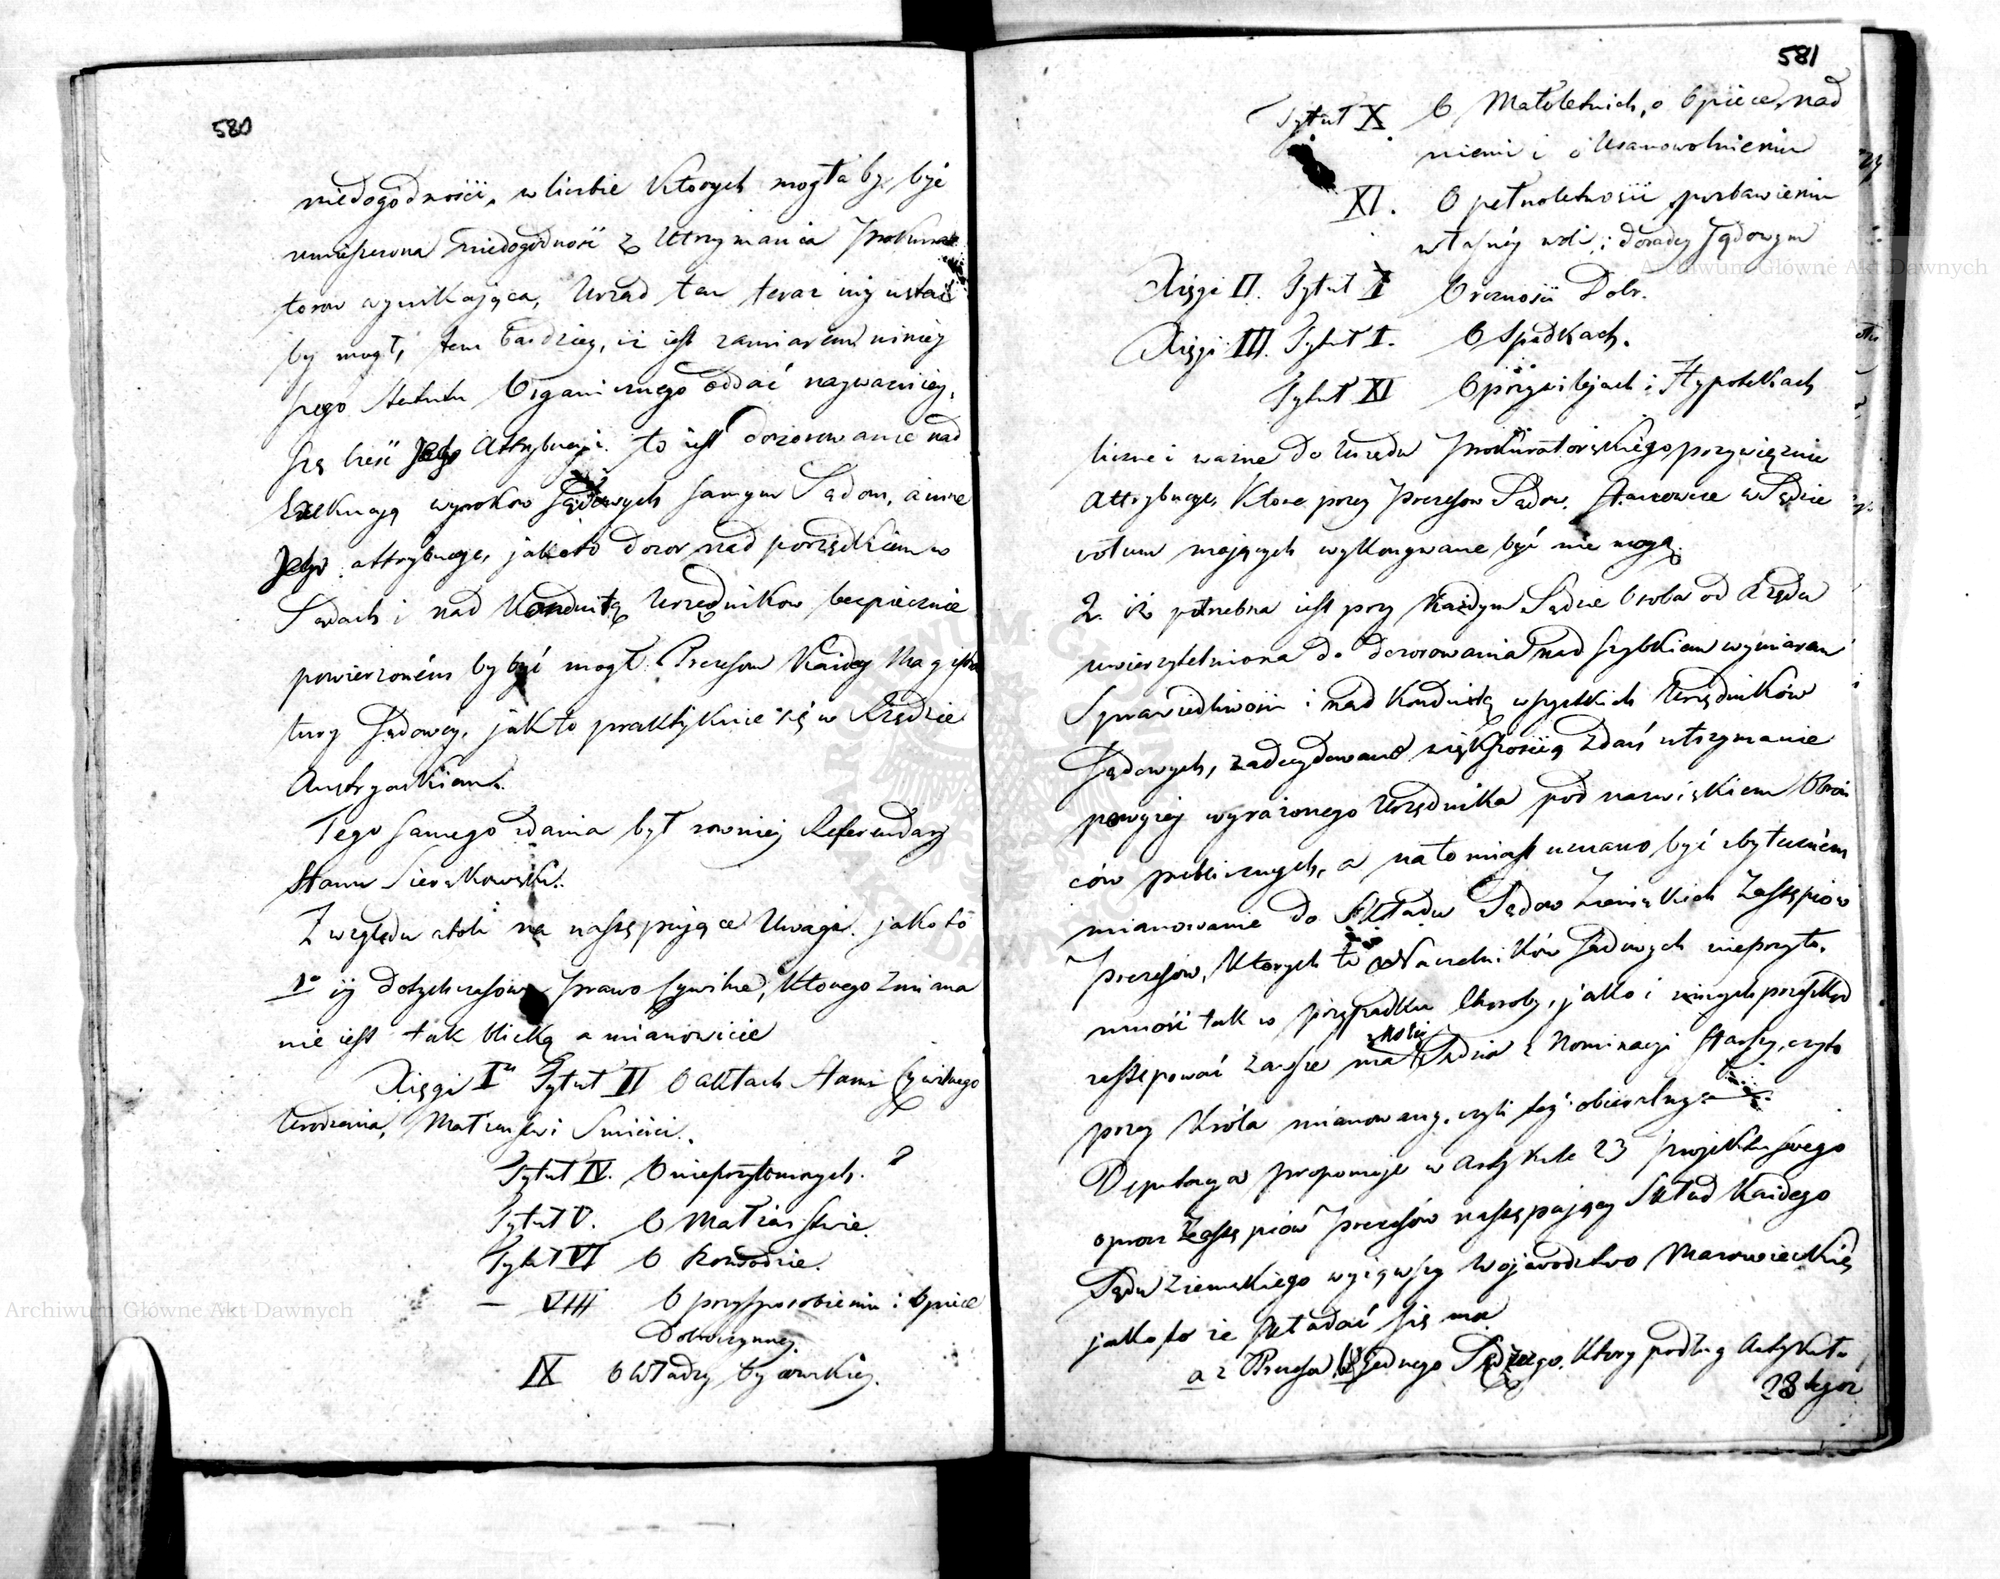 580
niedogodności, w liczbie Których mogłaby być
umieszczona niedogodność z Utrzymania Prokura
torow wynikająca, Urząd ten teraz iuż ustać
by mogł, tem bardziey, iż iest zamiarem niniey
szego Statutu Organicznego oddać nayważniey,
szą część Jego Attrybucyi. to iest dozorowanie nad
Exekucyą wyrokow Sądowych samym Sądom, a inne
Jego attrybucye, jakoto dozor nad porządkiem w
Sądach i nad Konduitą Urzędnikow bezpiecznie
powierzonem by być mogł Prezesom Każdey Magistra
tury Sądowey, jak to praktykuie się w Rządzie
Austryackiem.
Tego samego zdania był rowniey Referendarz
Stanu Sierakowski.
Z względu atoli na następujące Uwagi. jakoto
1o iż dotychczasowe Prawo Cywilne, Ktorego zmiana
nie iest tak bliską a mianowicie
Xięgi Iey Tytuł II O aktach Stanu Cywilnego
Urodzenia, Małżeństwi Smierci.
Tytuł IV. O nieprzytomnych.
Tytuł V. O Małżeństwie.
Tytuł VI O Rozwodzie.
— VIII O przysposobieniu i Opiece
Dobroczynney.
IX O Władzy Oycowskiey.
581
Tytuł X. O Małoletnich, o Opiece nad
niemi i o Usamowolnieniu
XI. O pełnoletności, pozbawieniu
własney woli i doradcy Sądowym
Xięgi II. Tytuł I O roznosci Dobr.
Xięgi III. Tytuł I. O Spadkach.
Tytuł XI O przywilejach i Hypotekach
liczne i ważne do Urzędu Prokuratorskiego przywięzuie
Attrybucye, Ktore przez Prezesow Sądow, stanowcze w Sądzie
votum mających wykonywane być nie mogą.
2. iż potrzebna iest przy Każdym Sądzie Osoba od Rządu
uwierzytelniona do dozorowania nad szybkiem wymiarem
Sprawiedliwości i nad Konduitą wszystkich Urzędników
Sądowych, zadecydowano większością zdań utrzymanie
powyżej wyrażonego Urzędnika pod nazwiskiem Obroń
ców publicznych, a natomiast uznano być zbytecznem
mianowanie do Składu Sądow Ziemskich Zastępców
Prezesów, Ktorych to Naczelników Sądowych nieprzyto.
mność tak w przypadku Choroby, jako i innych przeszkod
zastępować zawsze ma Sędzia z Nominacyi starszy, czyto
przez Króla mianowany, czyli też obieralny.
Deputacya proponuje w Artykule 23 Projektu swego
oprocz Zastępców Prezesów następujący Skład Każdego
Sądu Ziemskiego wyiąwszy Wojewodztwo Mazowieckie
jakoto że składać się ma
a z Prezesa, Jednego Sędziego, Ktory podług Artykułu
28 tegoż